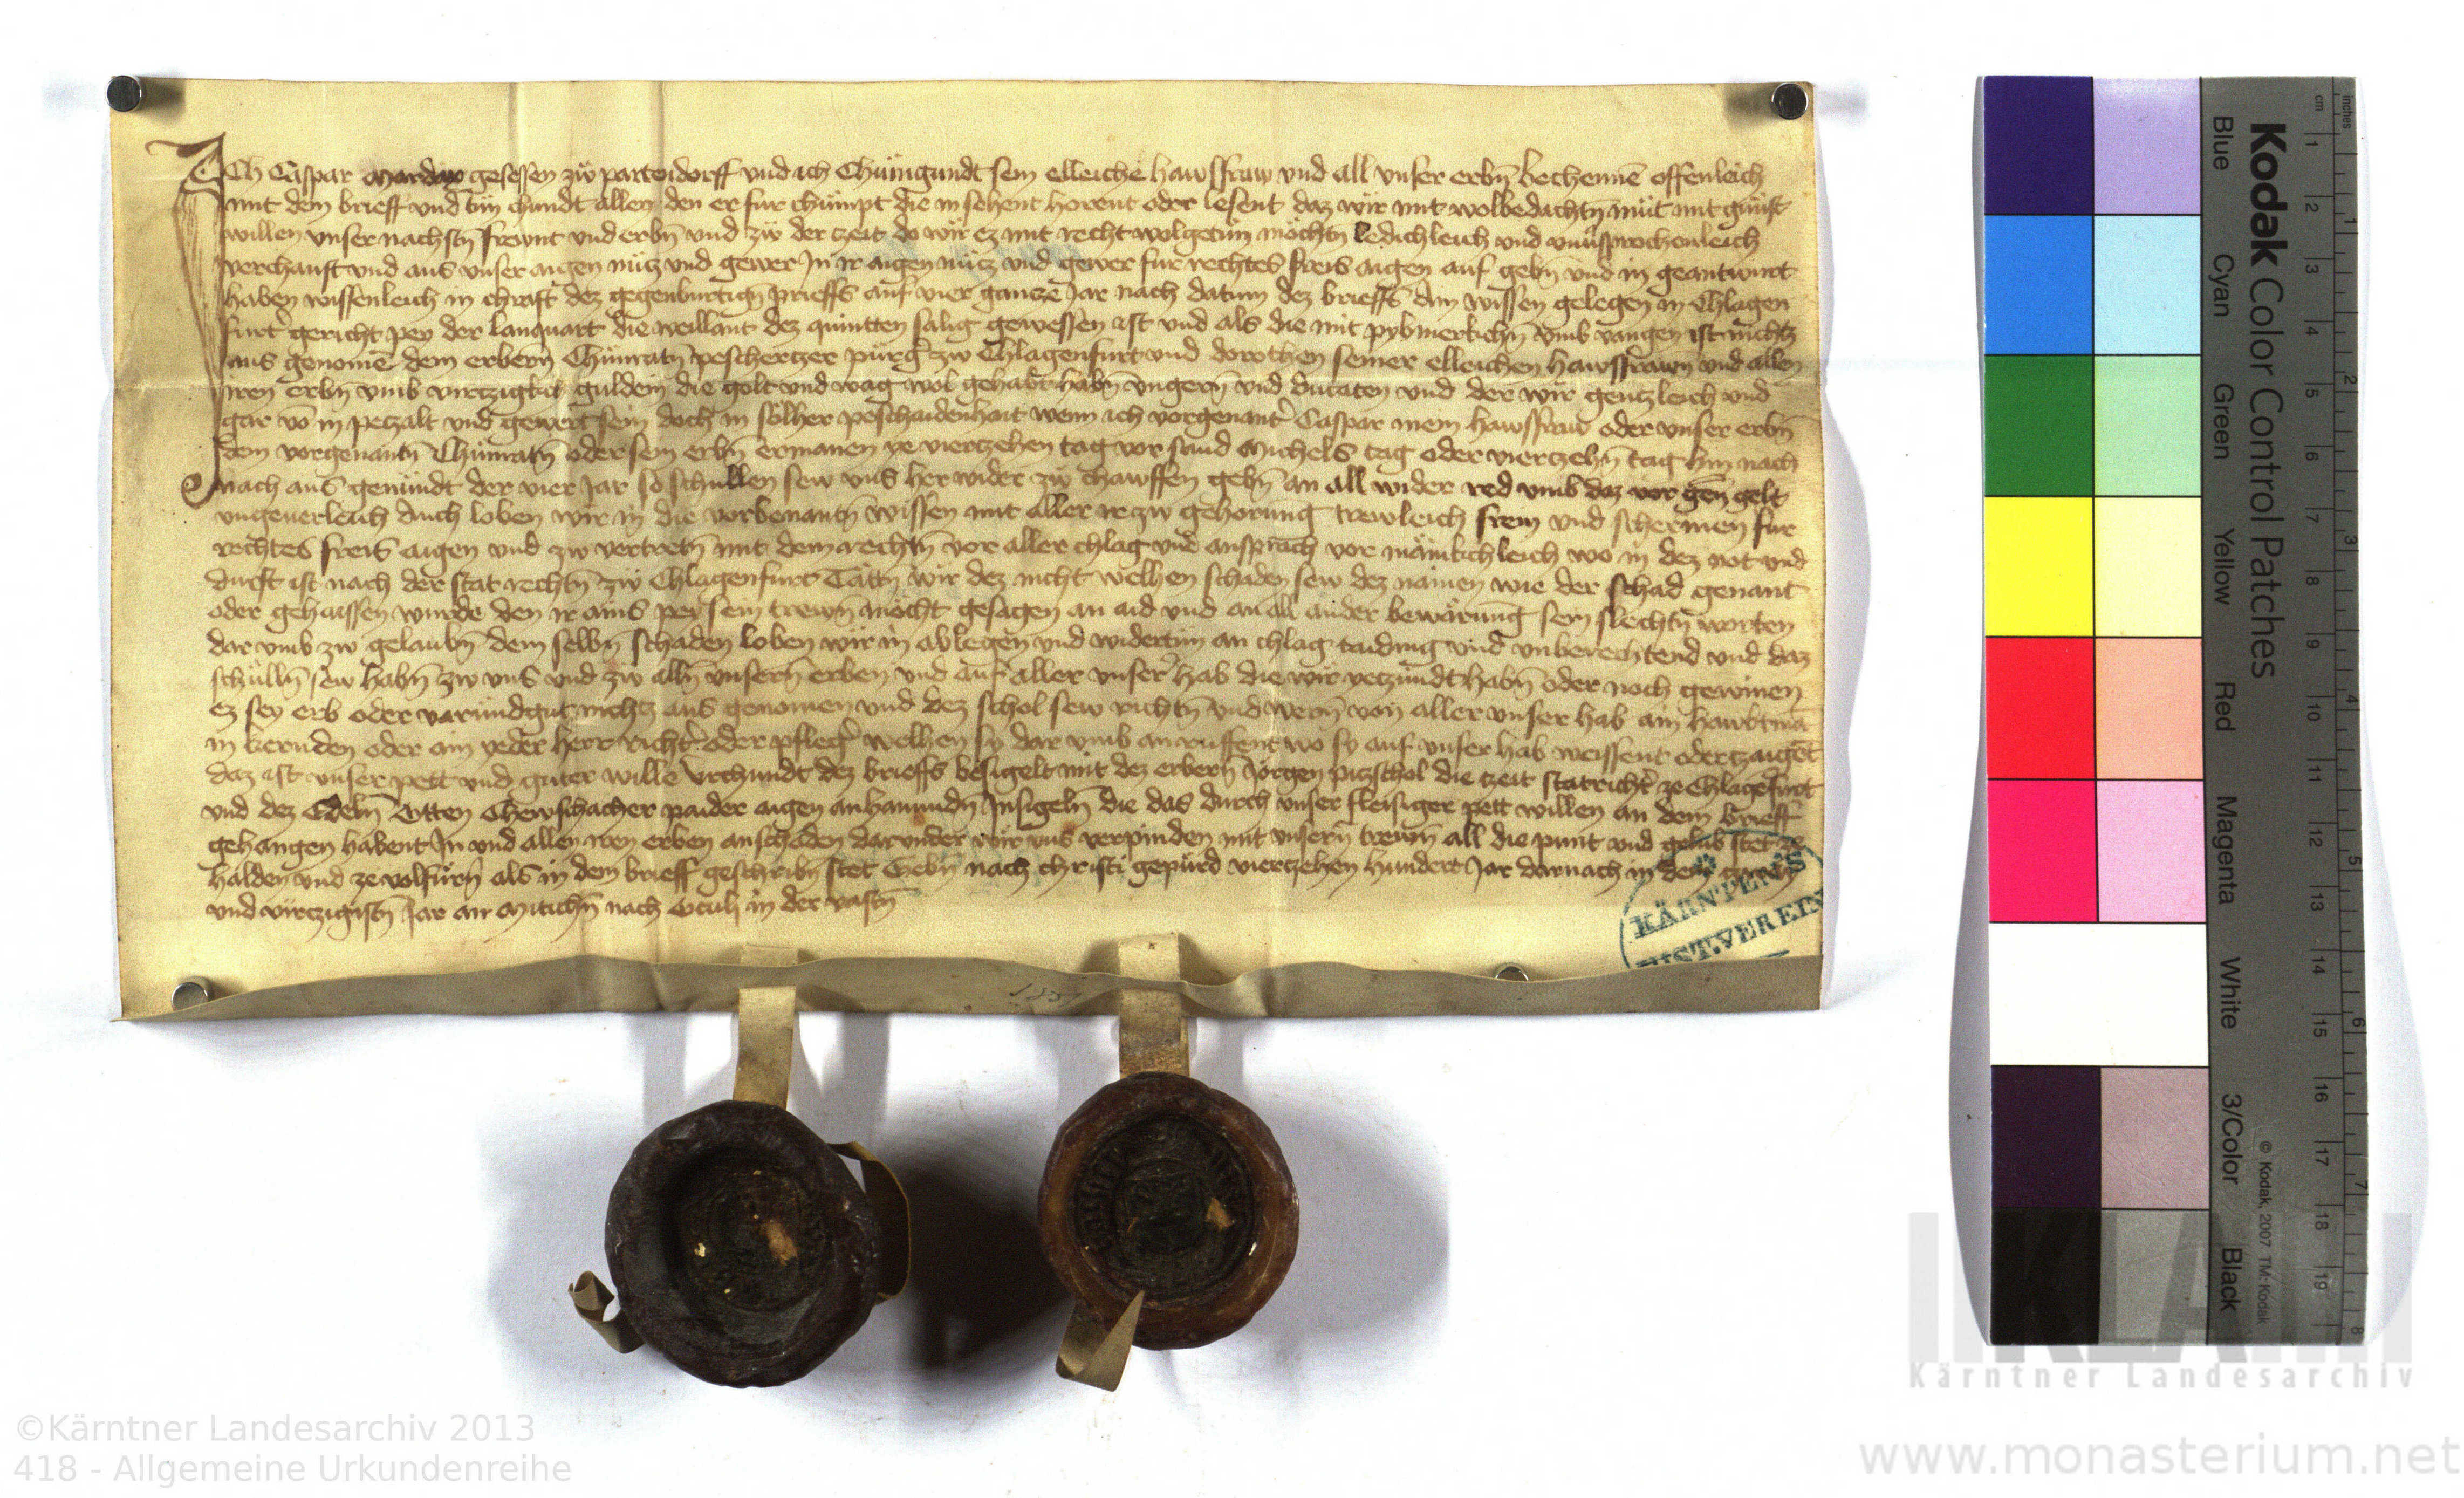 Ich Caspar Mordax gesessen zw partendorff und ich Chünigundt sein elleiche hawsfraw und all unser erbn̄ bechennē offenleich
mit dem brieff und tün chundt allen den er fur chümpt die in sehent horent oder lesent daz wir mit wolbedachtn̄ müt mit günst
willen unser nachstn̄ frewnt und erbn̄ und zw der czeit do wir ez mit recht wolgetün mochtn̄ ledichleich und unūsprochenleich
verchauft und aus unser aigen nütz und gewer In ir aigen nütz und gewer fur rechtes freis aigen auf gebn̄ und in geantwurt
haben wissenleich in chraft dez gegenburtign̄ prieffs auf vier gancze Jar nach datum dez brieffs Ain wissen gelegen in Chlagen
furt gericht pey der lanquart die weillant dez quintten salig gewessen ist und als die mit pybmerkichn̄ umb vangen ist nichtz
aus genomē dem erbern Chünratn̄ peschertzer pürgr̄ zw Chlagenfurt und dorothen seiner elleichen hawsfrawn̄ und allen
iren erbn̄ umb guldein die golt und wag wol gehabt habn̄ ungern̄ und ducaten und der wir gentzleich und
gar vō in peczalt und gewert sein doch in sölher peschaidenhait wenn ich vorgenant̄ Caspar mein hawsfraw oder unser erbn̄
dem vorgenantn̄ Chünratn̄ oder sein erbn̄ ermanen ye vierczehen tag vor sand Michels tag oder vierczehn̄ tag hin nach
nach aus genündt der vier Jar so schullen sew uns her wider zw chawffen gebn̄ an all wider red umb daz vor gen̄ gelt
ungeuerleich Auch loben wir in die vorbenantn̄ wissen mit aller ir zw gehorung trewleich frein und schermen fur
rechtes freis aigen und zw vertretn̄ mit dem rechtn̄ vor aller chlag und ansprach vor mānikchleich wo in dez not und
durft ist nach der stat rechtn̄ zw Chlagenfurt Tättn̄ wir dez nicht welhen schaden sew dez nāmen wie der schad genant
oder gehaissen wurde den ir ains pey sein trewn̄ möcht gesagen an aid und an all ander bewärung sein slechtn̄ worten
dar umb zw gelaubn̄ dem selbn̄ schaden loben wir in ablegen und widertün an chlag taiding und unberechtend und daz
schülln̄ sew habn̄ zw uns und zw alln̄ unsern̄ erben und auf aller unser̄ hab die wir yeczundt habn̄ oder noch gewinen
ez sey erb oder varundgut nichtz aus genomen und dez schol sew richtn̄ und wern̄ von aller unser hab ain hawbtmā
in kernden oder ain yeder herr richtr̄ oder pflegr̄ welhen sy dar umb anruffent wo sy auf unser hab weissent oder czaigēt
daz ist unser pett und guter wille Urchundt dez brieffs besigelt mit dez erbern̄ Jorgen pitzschol die czeit statrichtr̄ ze Chlagēfurt
und dez Edeln̄ Otten Chewschacher paider aigen anhanundn̄ Insigeln̄ die das durch unser fleisiger pett willen an dem brieff
gehangen habent In und allen iren erben anschaden darunder wir uns verpinden mit unsern̄ trewn̄ all die punt und gelub stet ze
halden und ze volfürn̄ als in dem brieff geschribn̄ stet Gebn̄ nach christi gepürd vierczehen hundert Jar darnach in dem
und virczigistn̄ Jar an Mitichn̄ nach Oculi in der vastn̄
KÄRNTENS
HIST. VEREIN
Kodak Color Control Patches
Blue Cyan Green Yellow Red Magenta White 3/Color Black
cm 1 2 3 4 5 6 7 8 9 10 11 12 13 14 15 16 17 18 19
inches 1 2 3 4 5 6 7 8
© Kodak, 2007 TM: Kodak
KLA
Kärntner Landesarchiv
©Kärntner Landesarchiv 2013
418 - Allgemeine Urkundenreihe
www.monasterium.net